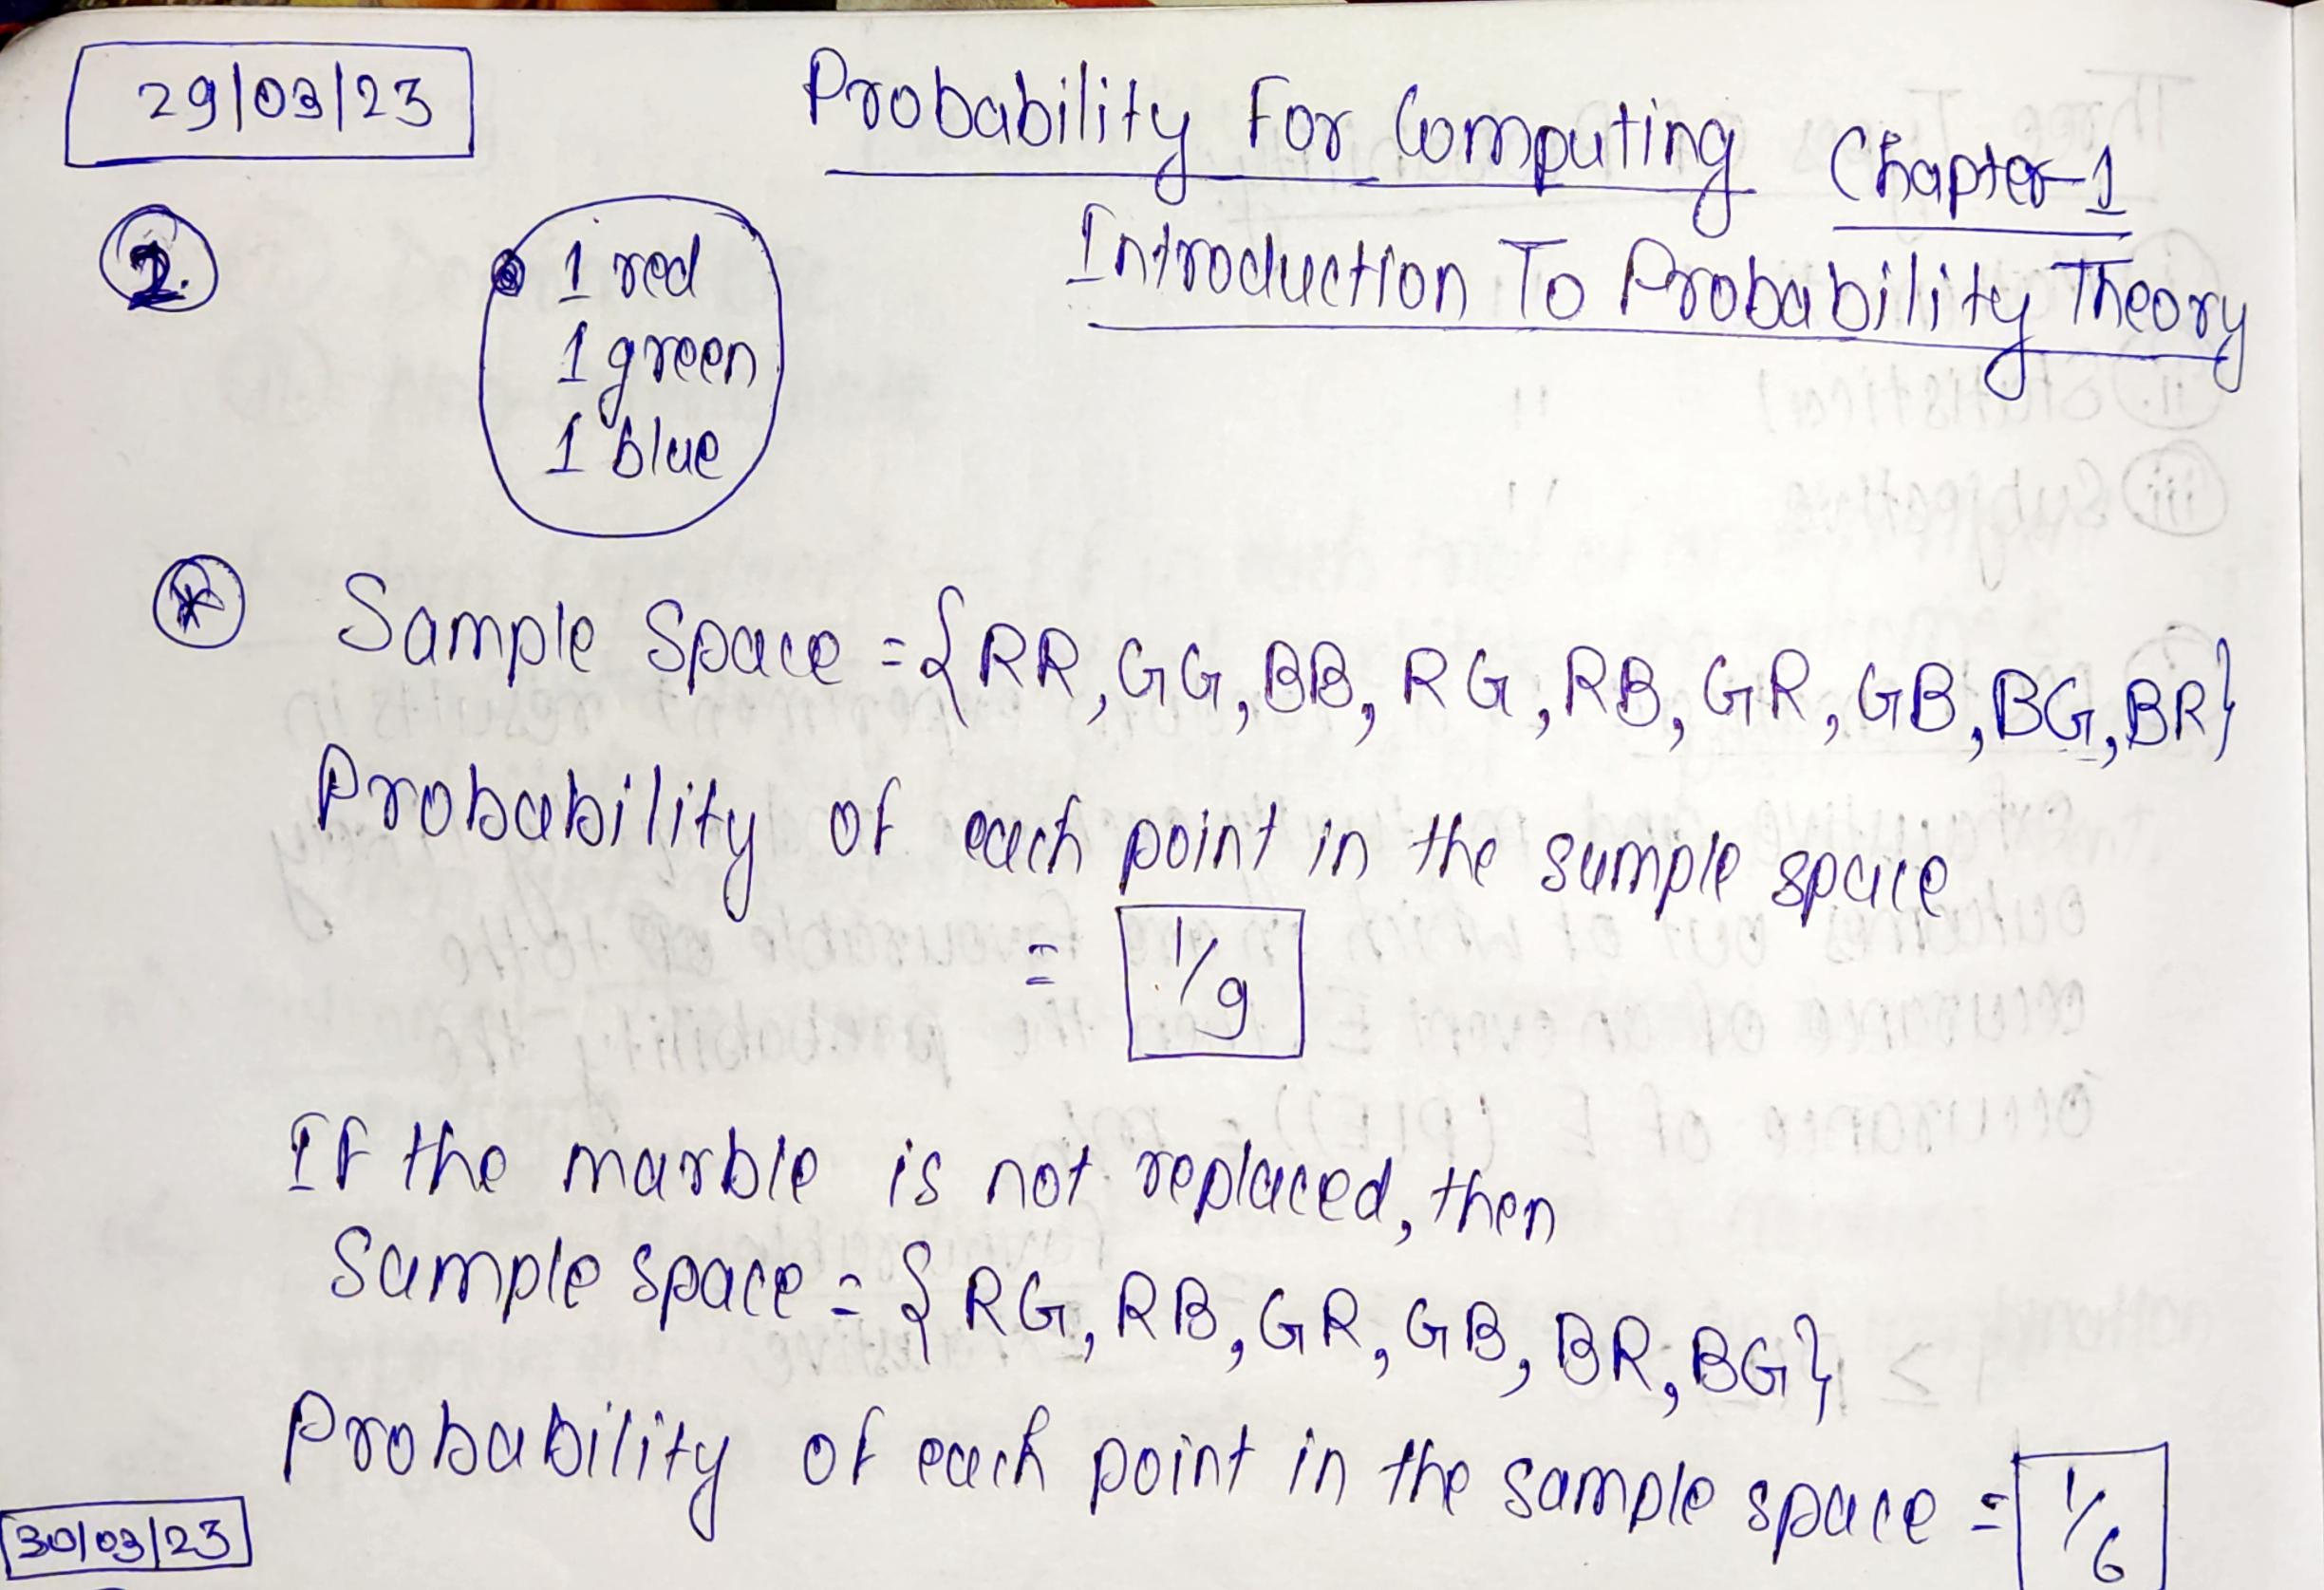 29/03/23
Probability For Computing Chapter-1
Introduction To Probability Theory
2.
1 red
1 green
1 blue
* Sample Space = {RR, GG, BB, RG, RB, GR, GB, BG, BR}
Probability of each point in the sample space
= 1/9
If the marble is not replaced, then
Sample space = {RG, RB, GR, GB, BR, BG}
Probability of each point in the sample space = 1/6
30/03/23